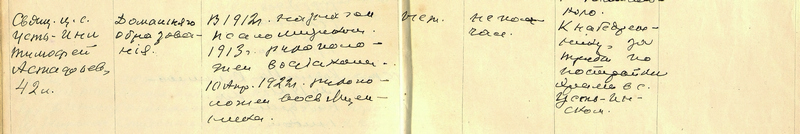 Свящ. ц. с.
Усть-Ини
Тимофей
Астафьев,
42 л.
Домашняго
образова-
ния.
В 1912 г. назначен
псаломщиком.
1913 г. рукополо-
жен во диакона.
10 Апр. 1922 г. рукопо-
ложен во священ-
ника.
нет.
не по
чем.
К набедрен-
нику, за
труды по
постройки
храма в с.
Усть-Ин-
ском.